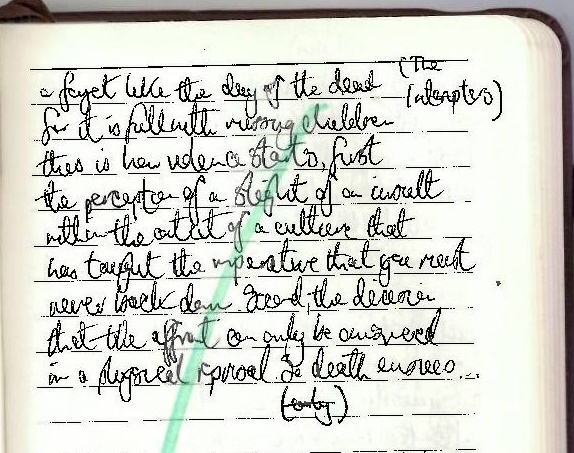 (The
a forget like the day of the dead (interpters)
for it is full with missing children
this is how violence starts, first
the perception of a slight of an insult
within the context of a culture that
has taught the imperative that you must
never back down second, the decision
that the affront can only be answered
in a physical reprisal so death ensues...